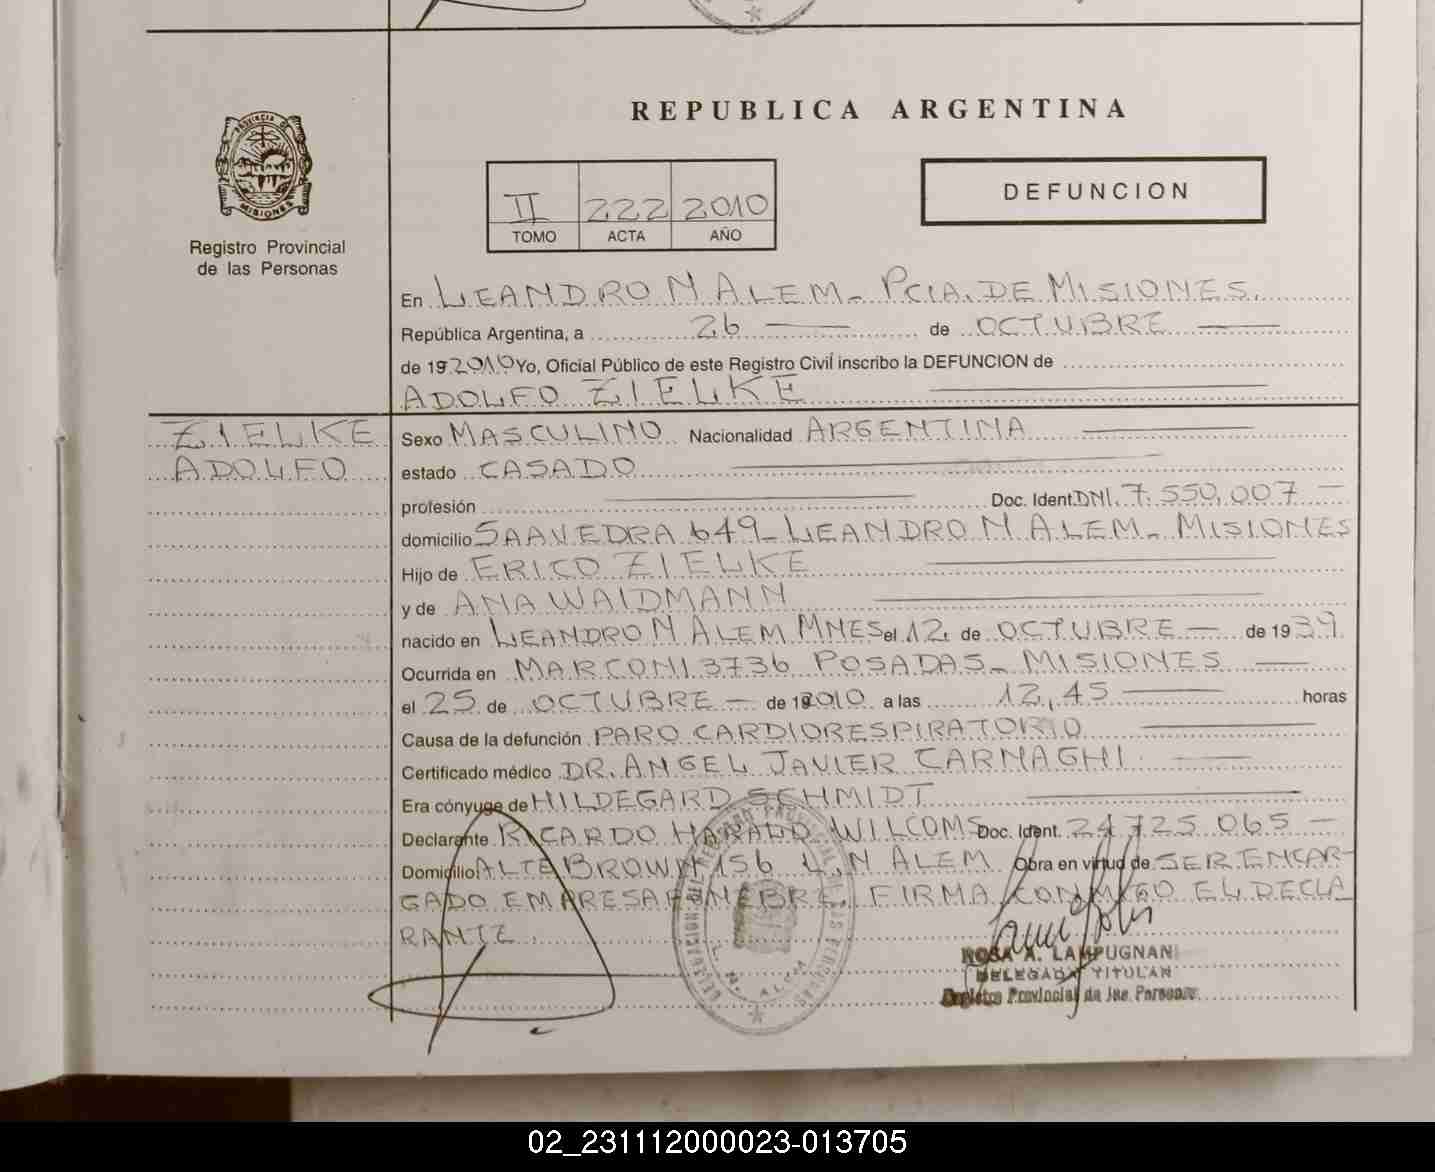 REPUBLICA ARGENTINA
PROVINCIA D
MISIONES
Registro Provincial
de las Personas
II 222 2010
TOMO ACTA AÑO
DEFUNCION
En LEANDRO N ALEM - PCIA. DE MISIONES.
República Argentina, a 26 de OCTUBRE
de 19 2010 Yo, Oficial Público de este Registro Civil inscribo la DEFUNCION de
ADOLFO ZIELKE
ZIELKE
ADOLFO
Sexo MASCULINO Nacionalidad ARGENTINA
estado CASADO
profesión Doc. Ident. DNI. 7.550.007 -
domicilio SAAVEDRA 649 - LEANDRO N ALEM - MISIONES
Hijo de ERICO ZIELKE
y de ANA WAIDMANN
nacido en LEANDRO N ALEM MNES el 12 de OCTUBRE - de 19 39
Ocurrida en MARCONI 3736 POSADAS - MISIONES
el 25 de OCTUBRE - de 19 2010 a las 12,45 horas
Causa de la defunción PARO CARDIORESPIRATORIO
Certificado médico DR. ANGEL JAVIER CARNAGHI
Era cónyuge de HILDEGARD SCHMIDT
Declarante RICARDO HARALD WILCOMS Doc. Ident. 24725065 -
Domicilio ALTE BROWN 156 L. N ALEM Obra en virtud de SER ENCAR-
GADO EMPRESA FUNEBRE. FIRMA CONMIGO EL DECLA-
RANTE.
ROSA A. LAMPUGNANI
DELEGADA TITULAR
Registro Provincial de las Personas
02_231112000023-013705